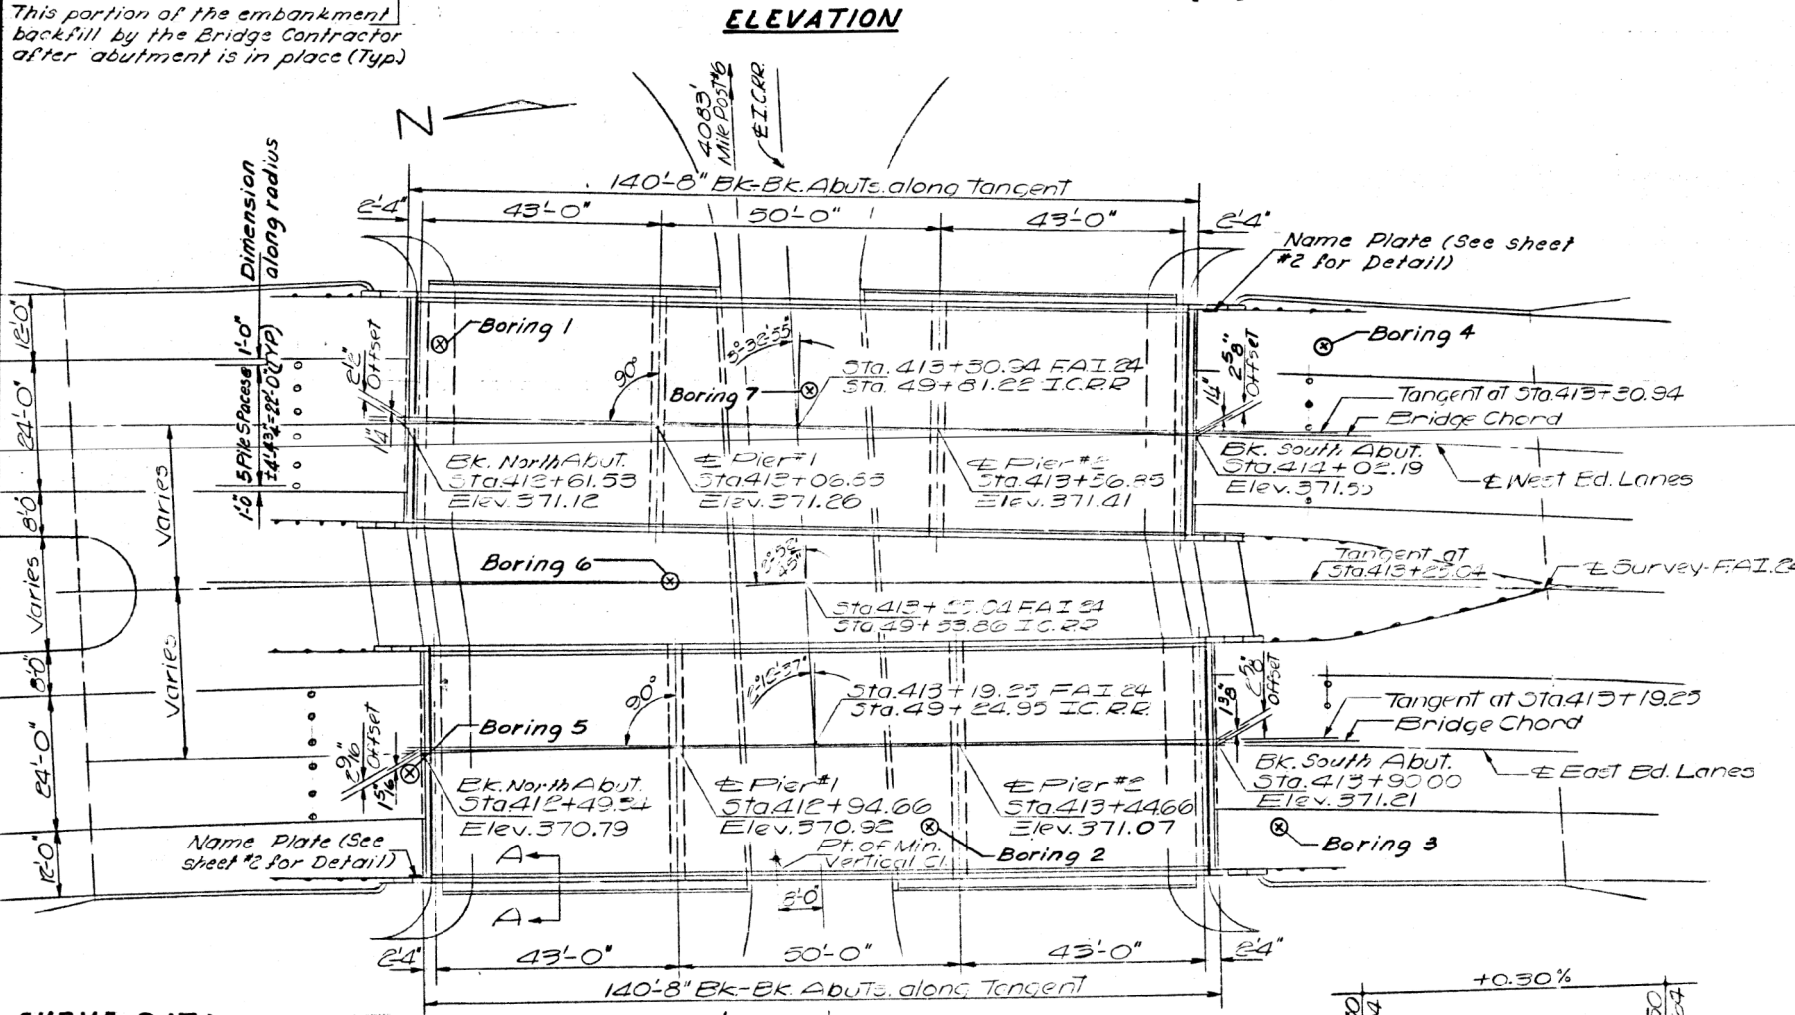 This portion of the embankment
backfill by the Bridge Contractor
after abutment is in place (Typ.)
ELEVATION
N
4083'
Mile Post #6
℄ I.C.R.R.
140'-8" Bk-Bk. Abuts. along Tangent
2'-4"
43'-0"
50'-0"
43'-0"
2'-4"
Name Plate (See sheet
#2 for Detail)
Dimension
along radius
1'-0"
5 Pile Spaces
1'-0"
12'-0"
24'-0"
8'-0"
Varies
8'-0"
24'-0"
12'-0"
Varies
Varies
Offset
1¼"
Boring 1
3°-32'-55"
90°
Boring 7
Sta. 413+30.94 F.A.I. 24
Sta. 49+81.22 I.C.R.R.
Boring 4
2⅝"
Offset
1¼"
Tangent at Sta. 413+30.94
Bridge Chord
Bk. North Abut.
Sta. 412+61.53
Elev. 371.12
℄ Pier #1
Elev. 371.26
℄ Pier #2
Sta. 413+56.85
Elev. 371.41
Bk. South Abut.
Sta. 414+02.19
℄ West Bd. Lanes
Boring 6
Tangent at
Sta. 413+25.04
℄ Survey-F.A.I. 24
Sta. 413+25.04 F.A.I. 24
Sta. 49+53.86 I.C.R.R.
90°
Sta. 413+19.25 F.A.I. 24
Sta. 49+24.95 I.C.R.R.
2⅝"
Offset
1⅜"
Tangent at Sta. 413+19.25
Bridge Chord
Boring 5
2 9/16"
Offset
1 5/16"
Bk. North Abut.
Sta. 412+49.34
Elev. 370.79
℄ Pier #1
Sta. 412+94.66
Elev. 370.92
℄ Pier #2
Sta. 413+44.66
Elev. 371.07
Bk. South Abut.
Sta. 413+90.00
Elev. 371.21
℄ East Bd. Lanes
Name Plate (See
sheet #2 for Detail)
A
A
Pt. of Min.
Vertical Cl.
Boring 2
Boring 3
8'-0"
2'-4"
43'-0"
50'-0"
43'-0"
2'-4"
140'-8" Bk-Bk. Abuts. along Tangent
+0.30%